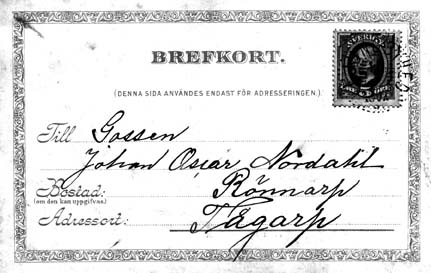 BREFKORT.
SVERIGE
(DENNA SIDA ANVÄNDES ENDAST FÖR ADRESSERINGEN.)
Till Gossen
Johan Oscar Nordahl
Bostad: Rönnarp
(om den kan uppgifvas)
Adressort: Tågarp